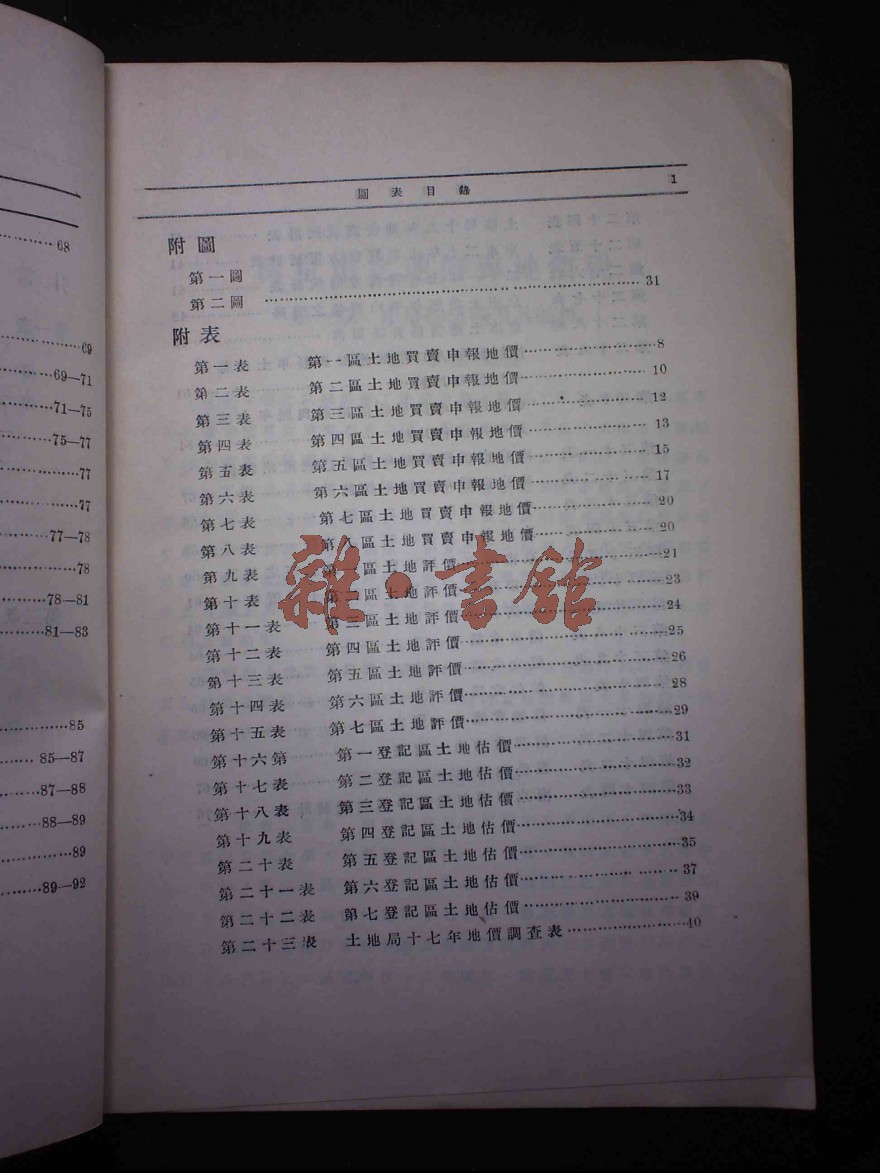 68
69
69—71
71—75
75—77
77
77
77—78
78
78—81
81—83
85
85—87
87—88
88—89
89
89—92
圖表目錄 1
附圖
第一圖
第二圖 31
附表
第一表 第一區土地買賣申報地價 8
第二表 第二區土地買賣申報地價 10
第三表 第三區土地買賣申報地價 12
第四表 第四區土地買賣申報地價 13
第五表 第五區土地買賣申報地價 15
第六表 第六區土地買賣申報地價 17
第七表 第七區土地買賣申報地價 20
第八表 第八區土地買賣申報地價 20
第九表 第一區土地評價 21
第十表 第二區土地評價 23
第十一表 第三區土地評價 24
第十二表 第四區土地評價 25
第十三表 第五區土地評價 26
第十四表 第六區土地評價 28
第十五表 第七區土地評價 29
第十六第 第一登記區土地估價 31
第十七表 第二登記區土地估價 32
第十八表 第三登記區土地估價 33
第十九表 第四登記區土地估價 34
第二十表 第五登記區土地估價 35
第二十一表 第六登記區土地估價 37
第二十二表 第七登記區土地估價 39
第二十三表 土地局十七年地價調查表 40
雜·書館